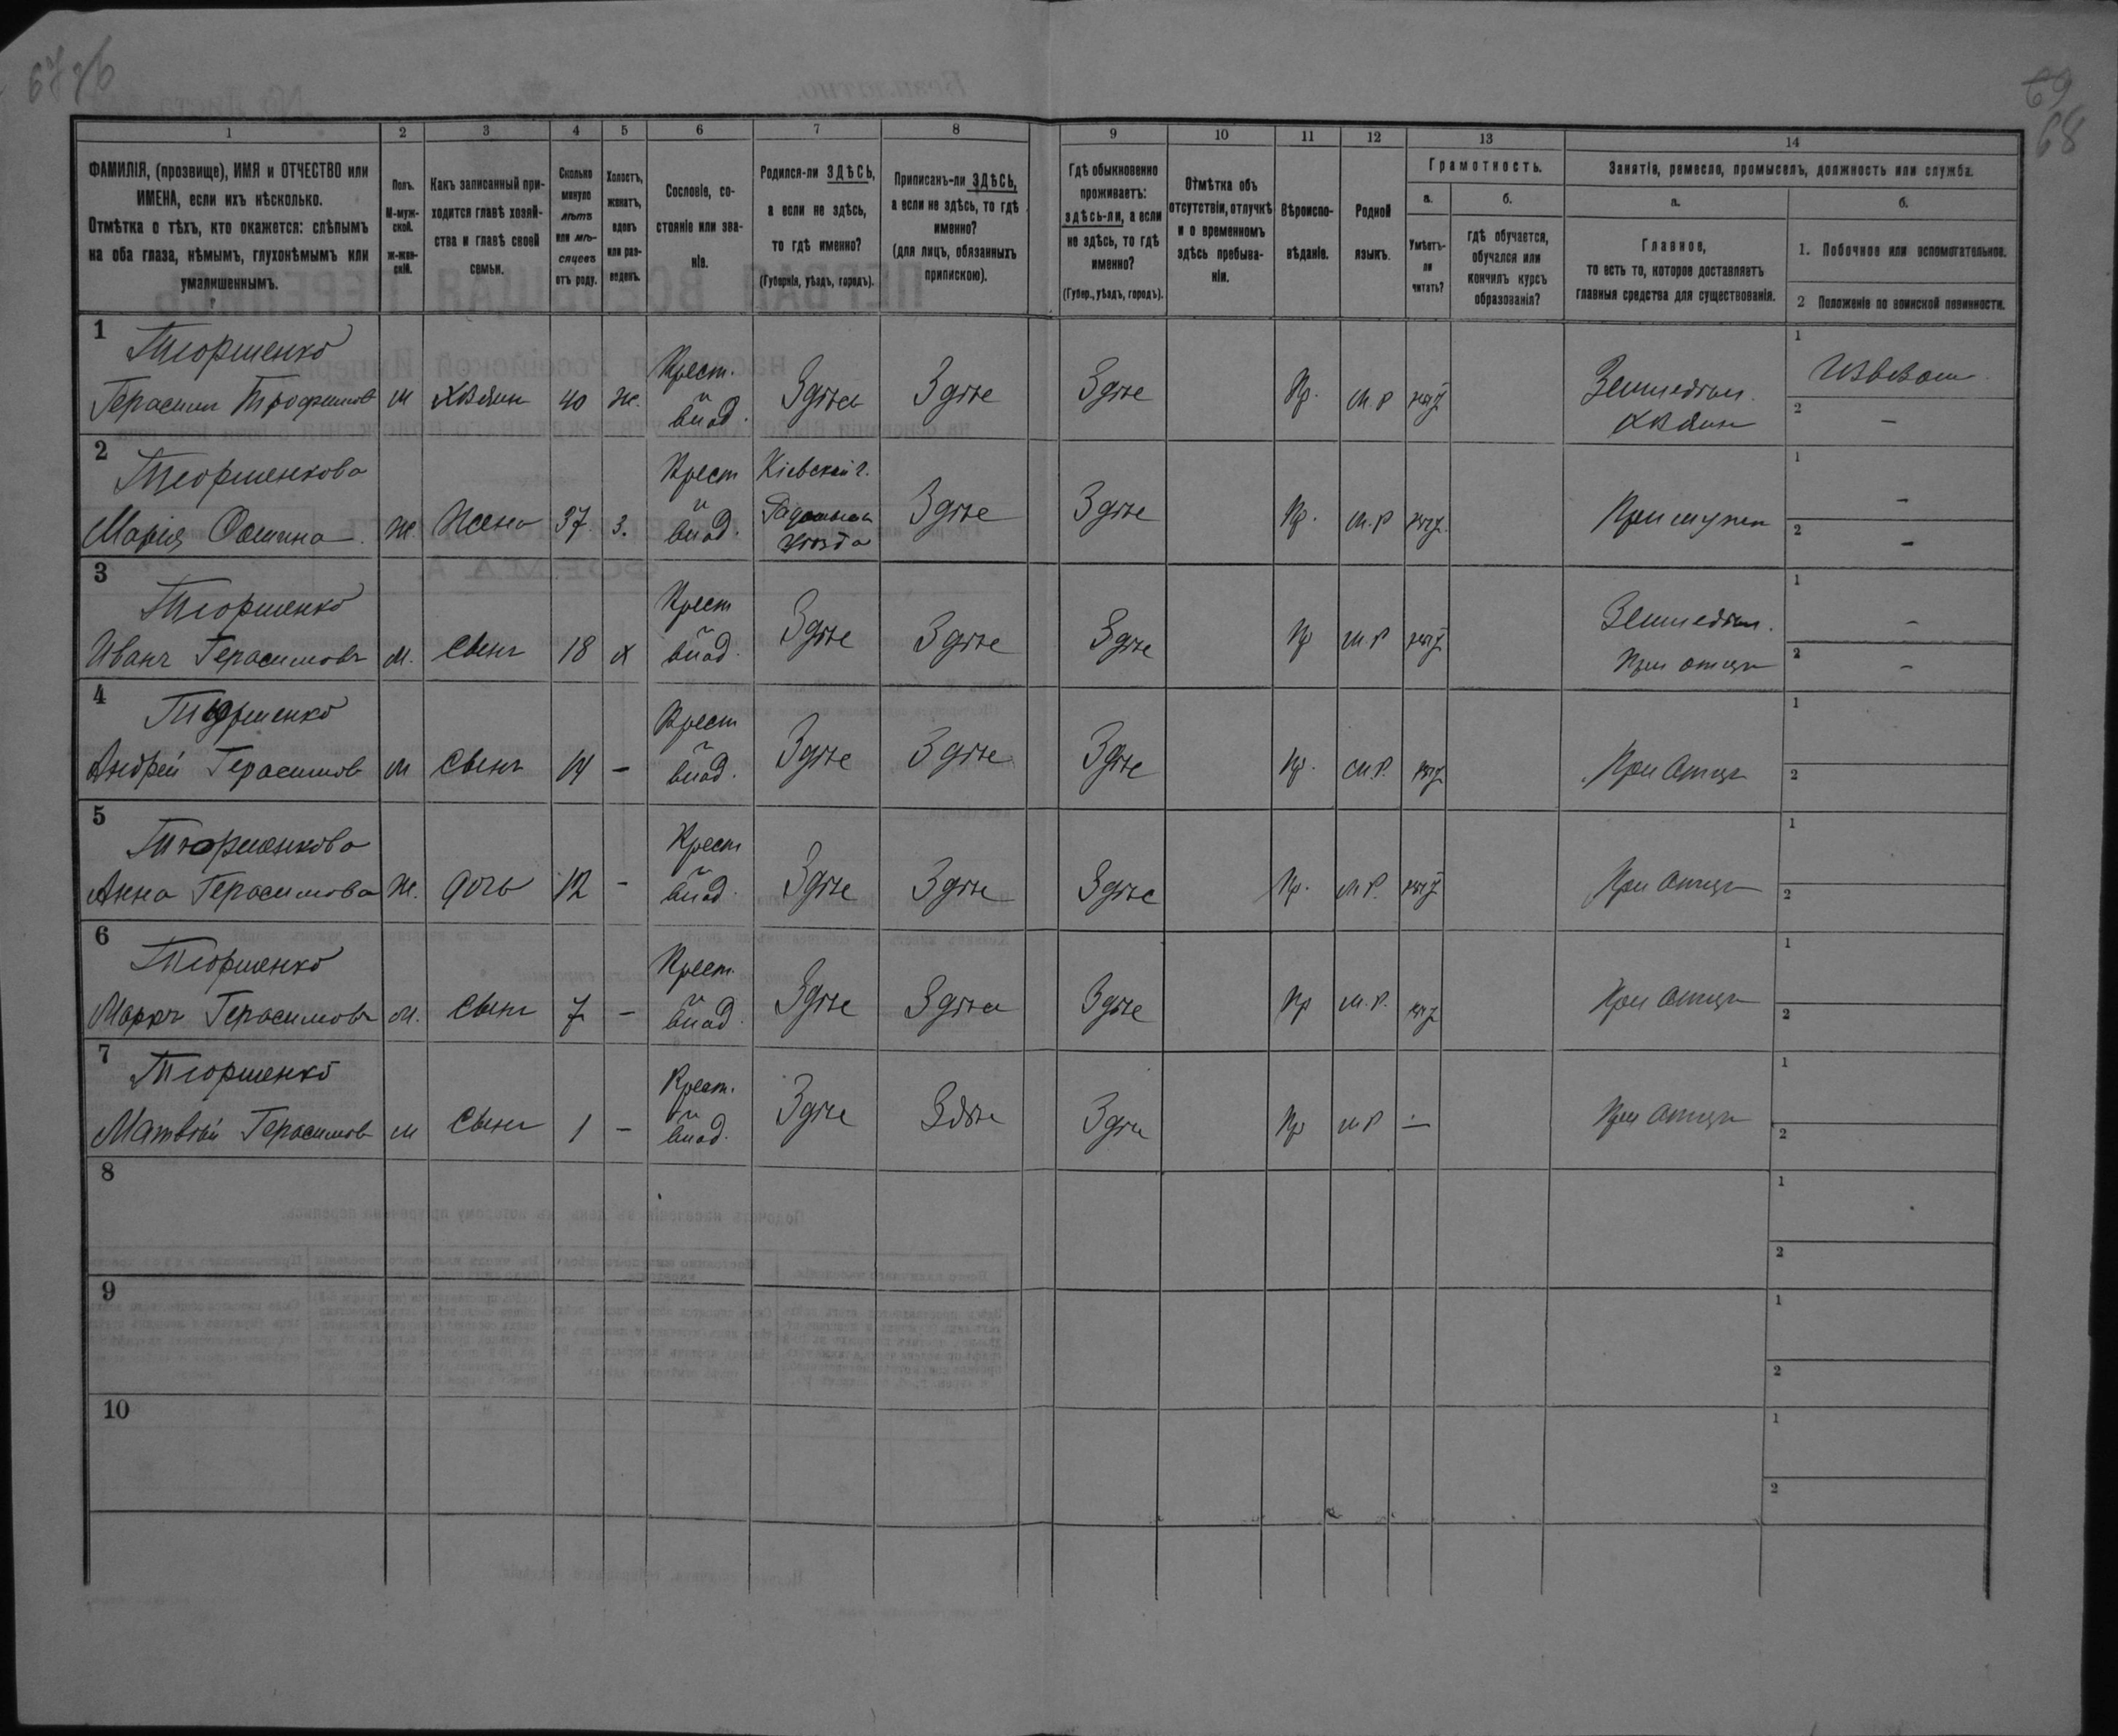 69
68
1 2 3 4 5 6 7 8 9 10 11 12 13 14
ФАМИЛІЯ, (прозвище), ИМЯ и ОТЧЕСТВО или
ИМЕНА, если ихъ нѣсколько.
Отмѣтка о тѣхъ, кто окажется: слѣпымъ
на оба глаза, нѣмымъ, глухонѣмымъ или
умалишеннымъ.
Полъ.
М-муж-
ской.
ж-жен-
скій.
Какъ записанный при-
ходится главѣ хозяй-
ства и главѣ своей
семьи.
Сколько
минуло
лѣтъ
или мѣ-
сяцевъ
отъ роду.
Холостъ,
женатъ,
вдовъ
или раз-
веденъ.
Сословіе, со-
стояніе или зва-
ніе.
Родился-ли ЗДѢСЬ,
а если не здѣсь,
то гдѣ именно?
(Губернія, уѣздъ, городъ).
Приписанъ-ли ЗДѢСЬ,
а если не здѣсь, то гдѣ
именно?
(для лицъ, обязанныхъ
припискою).
Гдѣ обыкновенно
проживаетъ:
здѣсь-ли, а если
не здѣсь, то гдѣ
именно?
(Губер., уѣздъ, городъ).
Отмѣтка объ
отсутствіи, отлучкѣ
и о временномъ
здѣсь пребыва-
ніи.
Вѣроиспо-
вѣданіе.
Родной
языкъ.
Грамотность.
а.
Умѣетъ-
ли
читать?
б.
гдѣ обучается,
обучался или
кончилъ курсъ
образованія?
Занятія, ремесло, промыселъ, должность или служба.
а.
Главное,
то есть то, которое доставляетъ
главныя средства для существованія.
б.
1. Побочное или вспомогательное.
2 Положеніе по воинской повинности.
1
Тюрменко
Герасим Трофимов М Хозяин 40 Ж. Крест. и влад. Здѣсь Здѣсь Здѣсь Пр. М.Р нѣт Земледѣл. Хозяин
1 Извозом
2 —
2
Тюрменкова
Марія Ж. Жена 37 З. Крест и влад. Кіевской г. уѣзда Здѣсь Здѣсь Пр. М.Р нѣт При мужѣ
1 —
2 —
3
Тюрменко
Иванъ Герасимовъ М. Сынъ 18 Х Крест и влад. Здѣсь Здѣсь Здѣсь Пр М.Р нѣт Земледѣл. При отцѣ
1 —
2 —
4
Тюрменко
Андрей Герасимов М Сынъ 14 — Крест и влад. Здѣсь Здѣсь Здѣсь Пр. М.Р. нѣт При отцѣ
1
2
5
Тюрменкова
Анна Герасимова Ж. дочь 12 — Крест и влад Здѣсь Здѣсь Здѣсь Пр. М.Р. нѣт При отцѣ
1
2
6
Тюрменко
Маркъ Герасимовъ М. Сынъ 7 — Крест. и влад. Здѣсь Здѣсь Здѣсь Пр М.Р. нѣт При отцѣ
1
2
7
Тюрменко
Матвѣй Герасимов М Сынъ 1 — Крест. и влад. Здѣсь Здѣсь Здѣсь Пр М.Р — При отцѣ
1
2
8
1
2
9
1
2
10
1
2